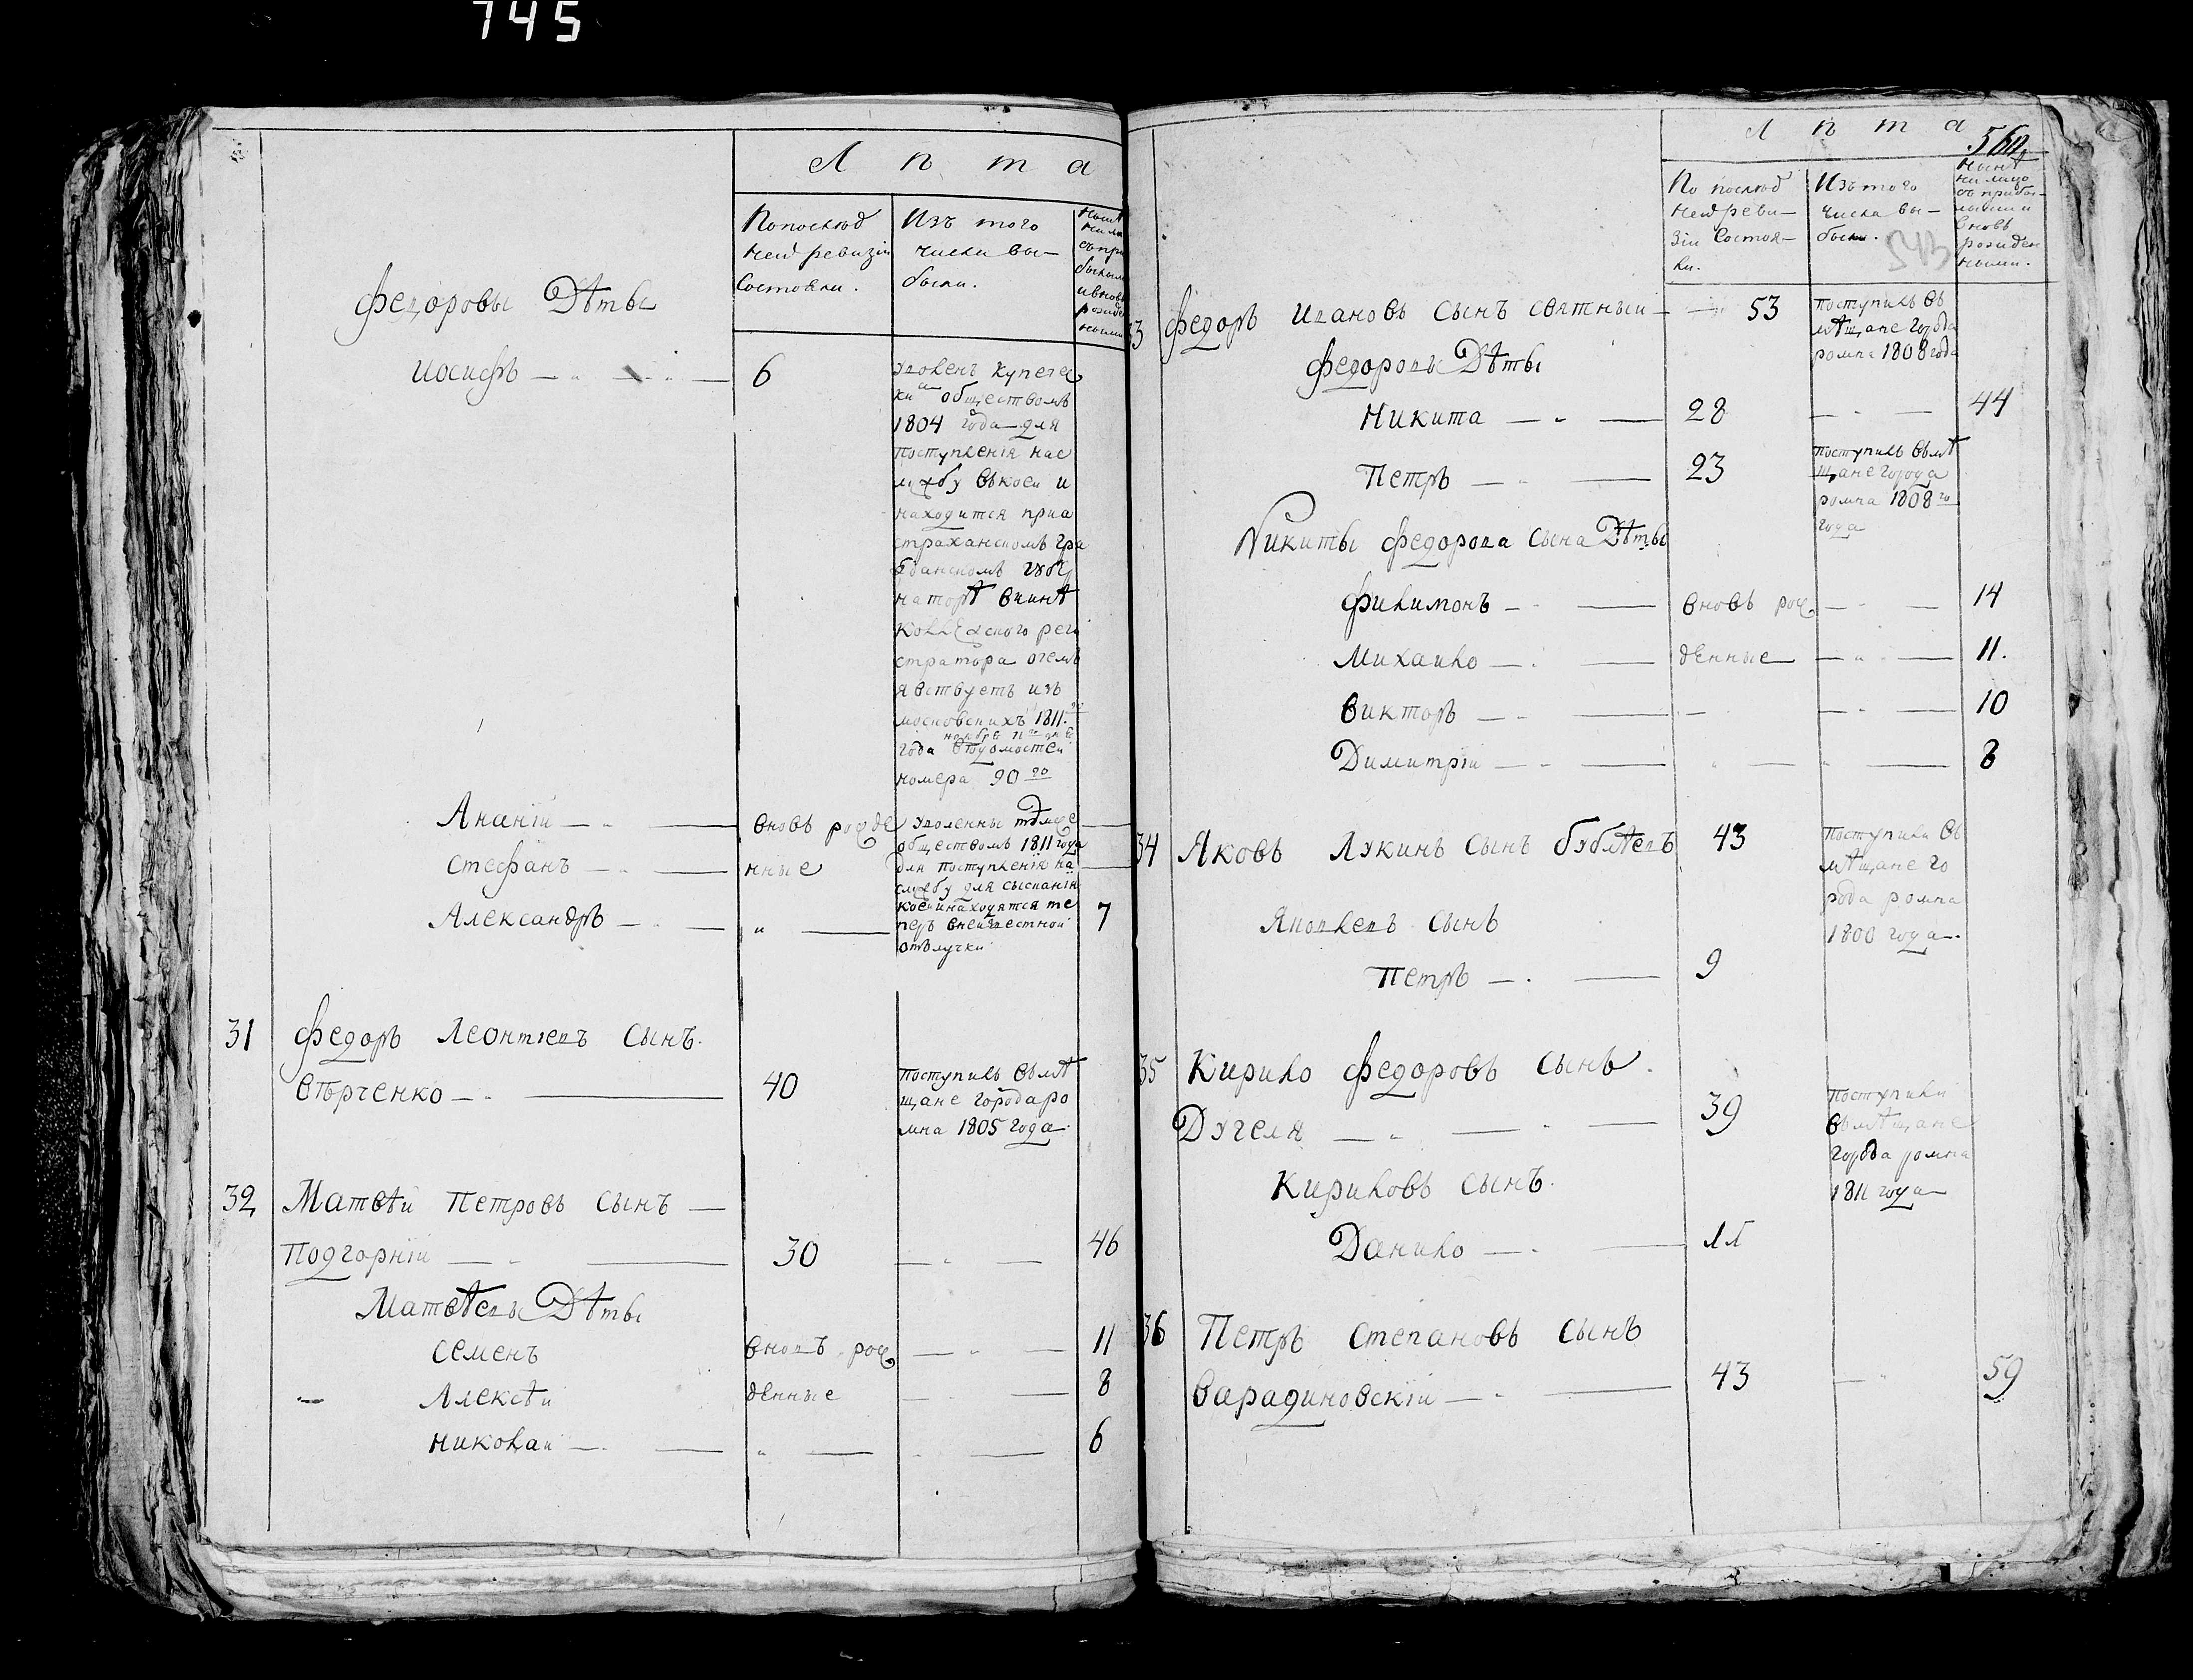 745
Лѣта
Попослѣд
ней ревизіи
состояли.
Изъ того
числа вы-
были.
Федоровы Дѣти
Иосифъ 6
уволенъ купечес
ки обществомъ
1804 года для
поступленія нас
лужбу вькоей и
находится приа
страханскомъ гра
жданскомъ губер
наторѣ вчинѣ
Коллежского реги
стратора очемъ
явствуетъ изъ
московскихъ 1811го
ноября 11го дня
года вѣдомостей
номера 90го
Ананій вновь рожде
Стефанъ нные
Александръ " 7
уволенны тѣмже
обществомъ 1811 года
для поступленія на
службу для сысканія
коей инаходятся те
перь вней
отълучки
31 Федоръ Леонтіевъ сынъ.
Вѣрченко 40
поступилъ вьмѣ
щане города ро
мна 1805 года.
32 Матвѣй Петровъ сынъ
Подгорній 30 46
Матвѣевы Дѣти
Семенъ вновъ рож 11
Алексѣй денные 8
Николай " 6
Лѣта
560
По послѣд
ней реви-
зіи состоя-
ли.
Изътого
числа вы-
были.
543
нынѣ
на лицо
съ прибы-
лыми и
вновь
рожден
ными.
33 Федоръ Ивановъ сынъ Святный 53
поступилъ въ
мѣщане города
ромна 1808 года
Федоровы Дѣти
Никита 28 44
Петръ 23
поступилъ вьмѣ
щане города
ромна 1808го
года
Никиты Федорова сына Дѣти
Филимонъ вновь рож 14
Михайло денные 11.
Викторъ 10
Димитрій 8
34 Яковъ Лукинъ сынъ Бублѣевъ 43
поступили въ
мѣщане го
рода ромна
1800 года.
Яковлевъ сынъ
Петръ 9
35 Кирило Федоровъ сынъ.
Дугеля 39
поступили
вьмѣщане
города ромна
1811 года
Кириловъ сынъ.
Данило 11
36 Петръ Степановъ сынъ
Варадиновскій 43 59